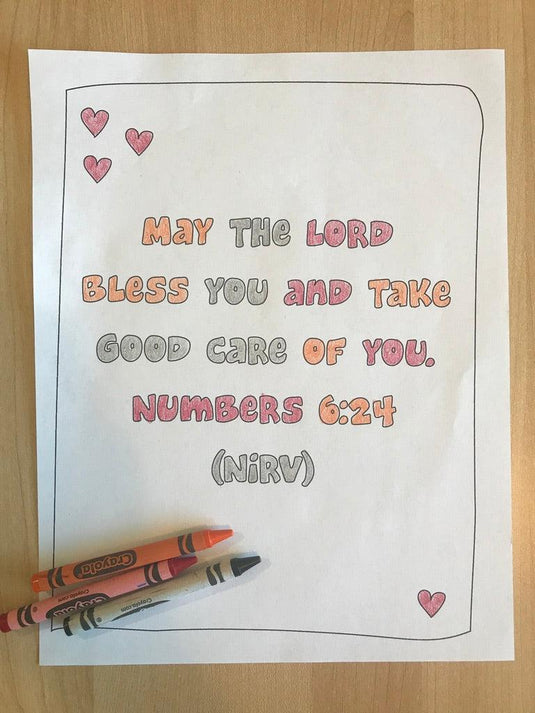 May THE LORD
BLess YOU and Take
GOOD care OF YOU.
NUMBERS 6:24
(NiRV)
Crayola
Crayola
Crayola.com
Crayola.com